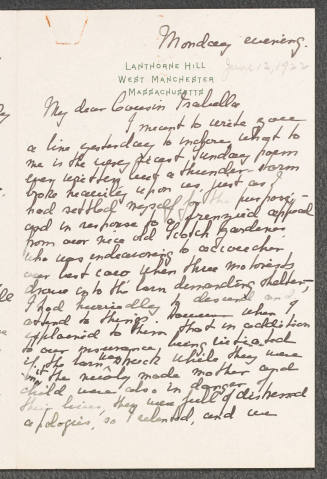 Monday evening.
LANTHORNE HILL
WEST MANCHESTER
MASSACHUSETTS
June 12, 1922
My dear Cousin Isabella
I meant to write you
a line yesterday to enclose what to
me is the very finest Sunday poem
ever written but a thunder-storm
broke heavily upon us, just as I
had settled myself for the purpose -
and in response to a frenzied appeal
from our nice old Scotch gardener
who was endeavoring to accoucher
our best cow when three motorists
drove into the barn demanding shelter,
I had hurriedly to descend and
attend to things. However when I
explained to them that in addition
to our insurance being listigated
if the barn was struck while they were
in it the newly made mother and
child were also in danger of
their lives, they were full of distressed
apologies, so I relented, and we